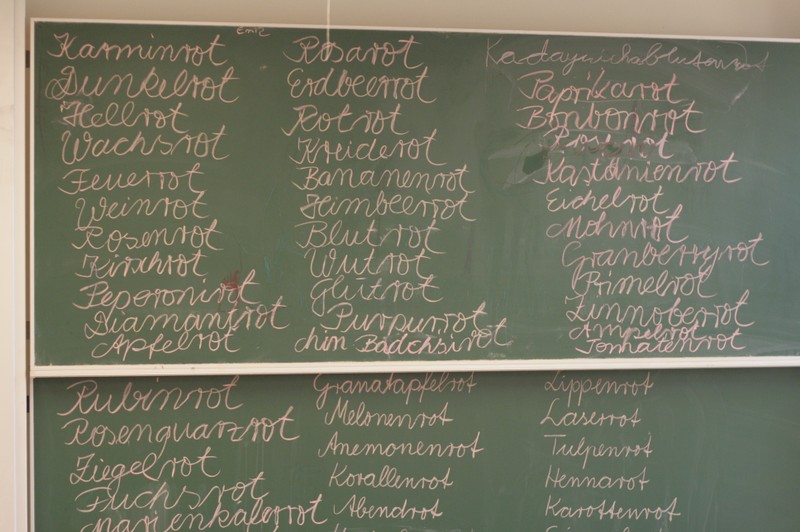 Karminrot
Dunkelrot
Hellrot
Wachsrot
Feuerrot
Weinrot
Rosenrot
Kirchrot
Peperonirot
Diamantrot
Apfelrot
Rosarot
Erdbeerrot
Rotrot
Kreiderot
Bananenrot
Heimbeerrot
Blutrot
Wutrot
Glutrot
Purpurrot
Paprikarot
Bonbonrot
Kastanienrot
Eichelrot
Mohnrot
Granberryrot
Primelrot
Zinnoberrot
Ampelrot
Tomatenrot
Rubinrot
Rosenquarzrot
Ziegelrot
Fuchsrot
Marienkäferrot
Granatapfelrot
Melonenrot
Anemonenrot
Korallenrot
Abendrot
Lippenrot
Laserrot
Tulpenrot
Hennarot
Karottenrot